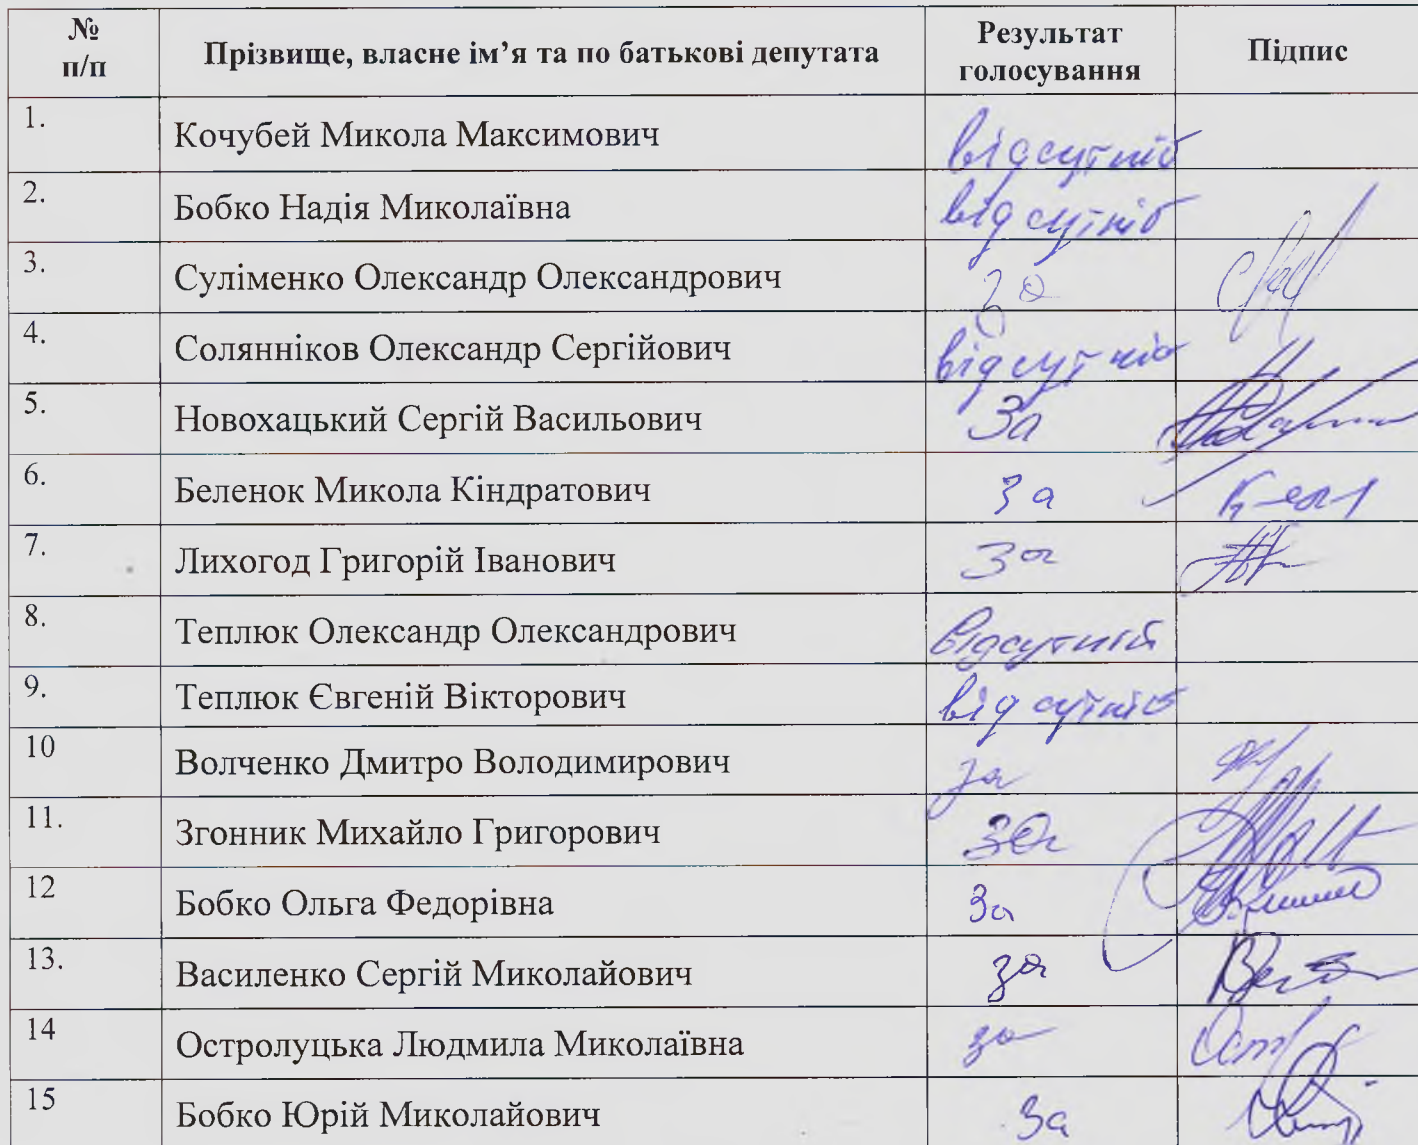 № п/п Прізвище, власне ім’я та по батькові депутата Результат голосування Підпис
1. Кочубей Микола Максимович відсутній
2. Бобко Надія Миколаївна відсутній
3. Суліменко Олександр Олександрович за
4. Солянніков Олександр Сергійович відсутній
5. Новохацький Сергій Васильович За
6. Беленок Микола Кіндратович за
7. Лихогод Григорій Іванович За
8. Теплюк Олександр Олександрович Відсутній
9. Теплюк Євгеній Вікторович відсутній
10 Волченко Дмитро Володимирович за
11. Згонник Михайло Григорович за
12 Бобко Ольга Федорівна За
13. Василенко Сергій Миколайович за
14 Остролуцька Людмила Миколаївна за
15 Бобко Юрій Миколайович За